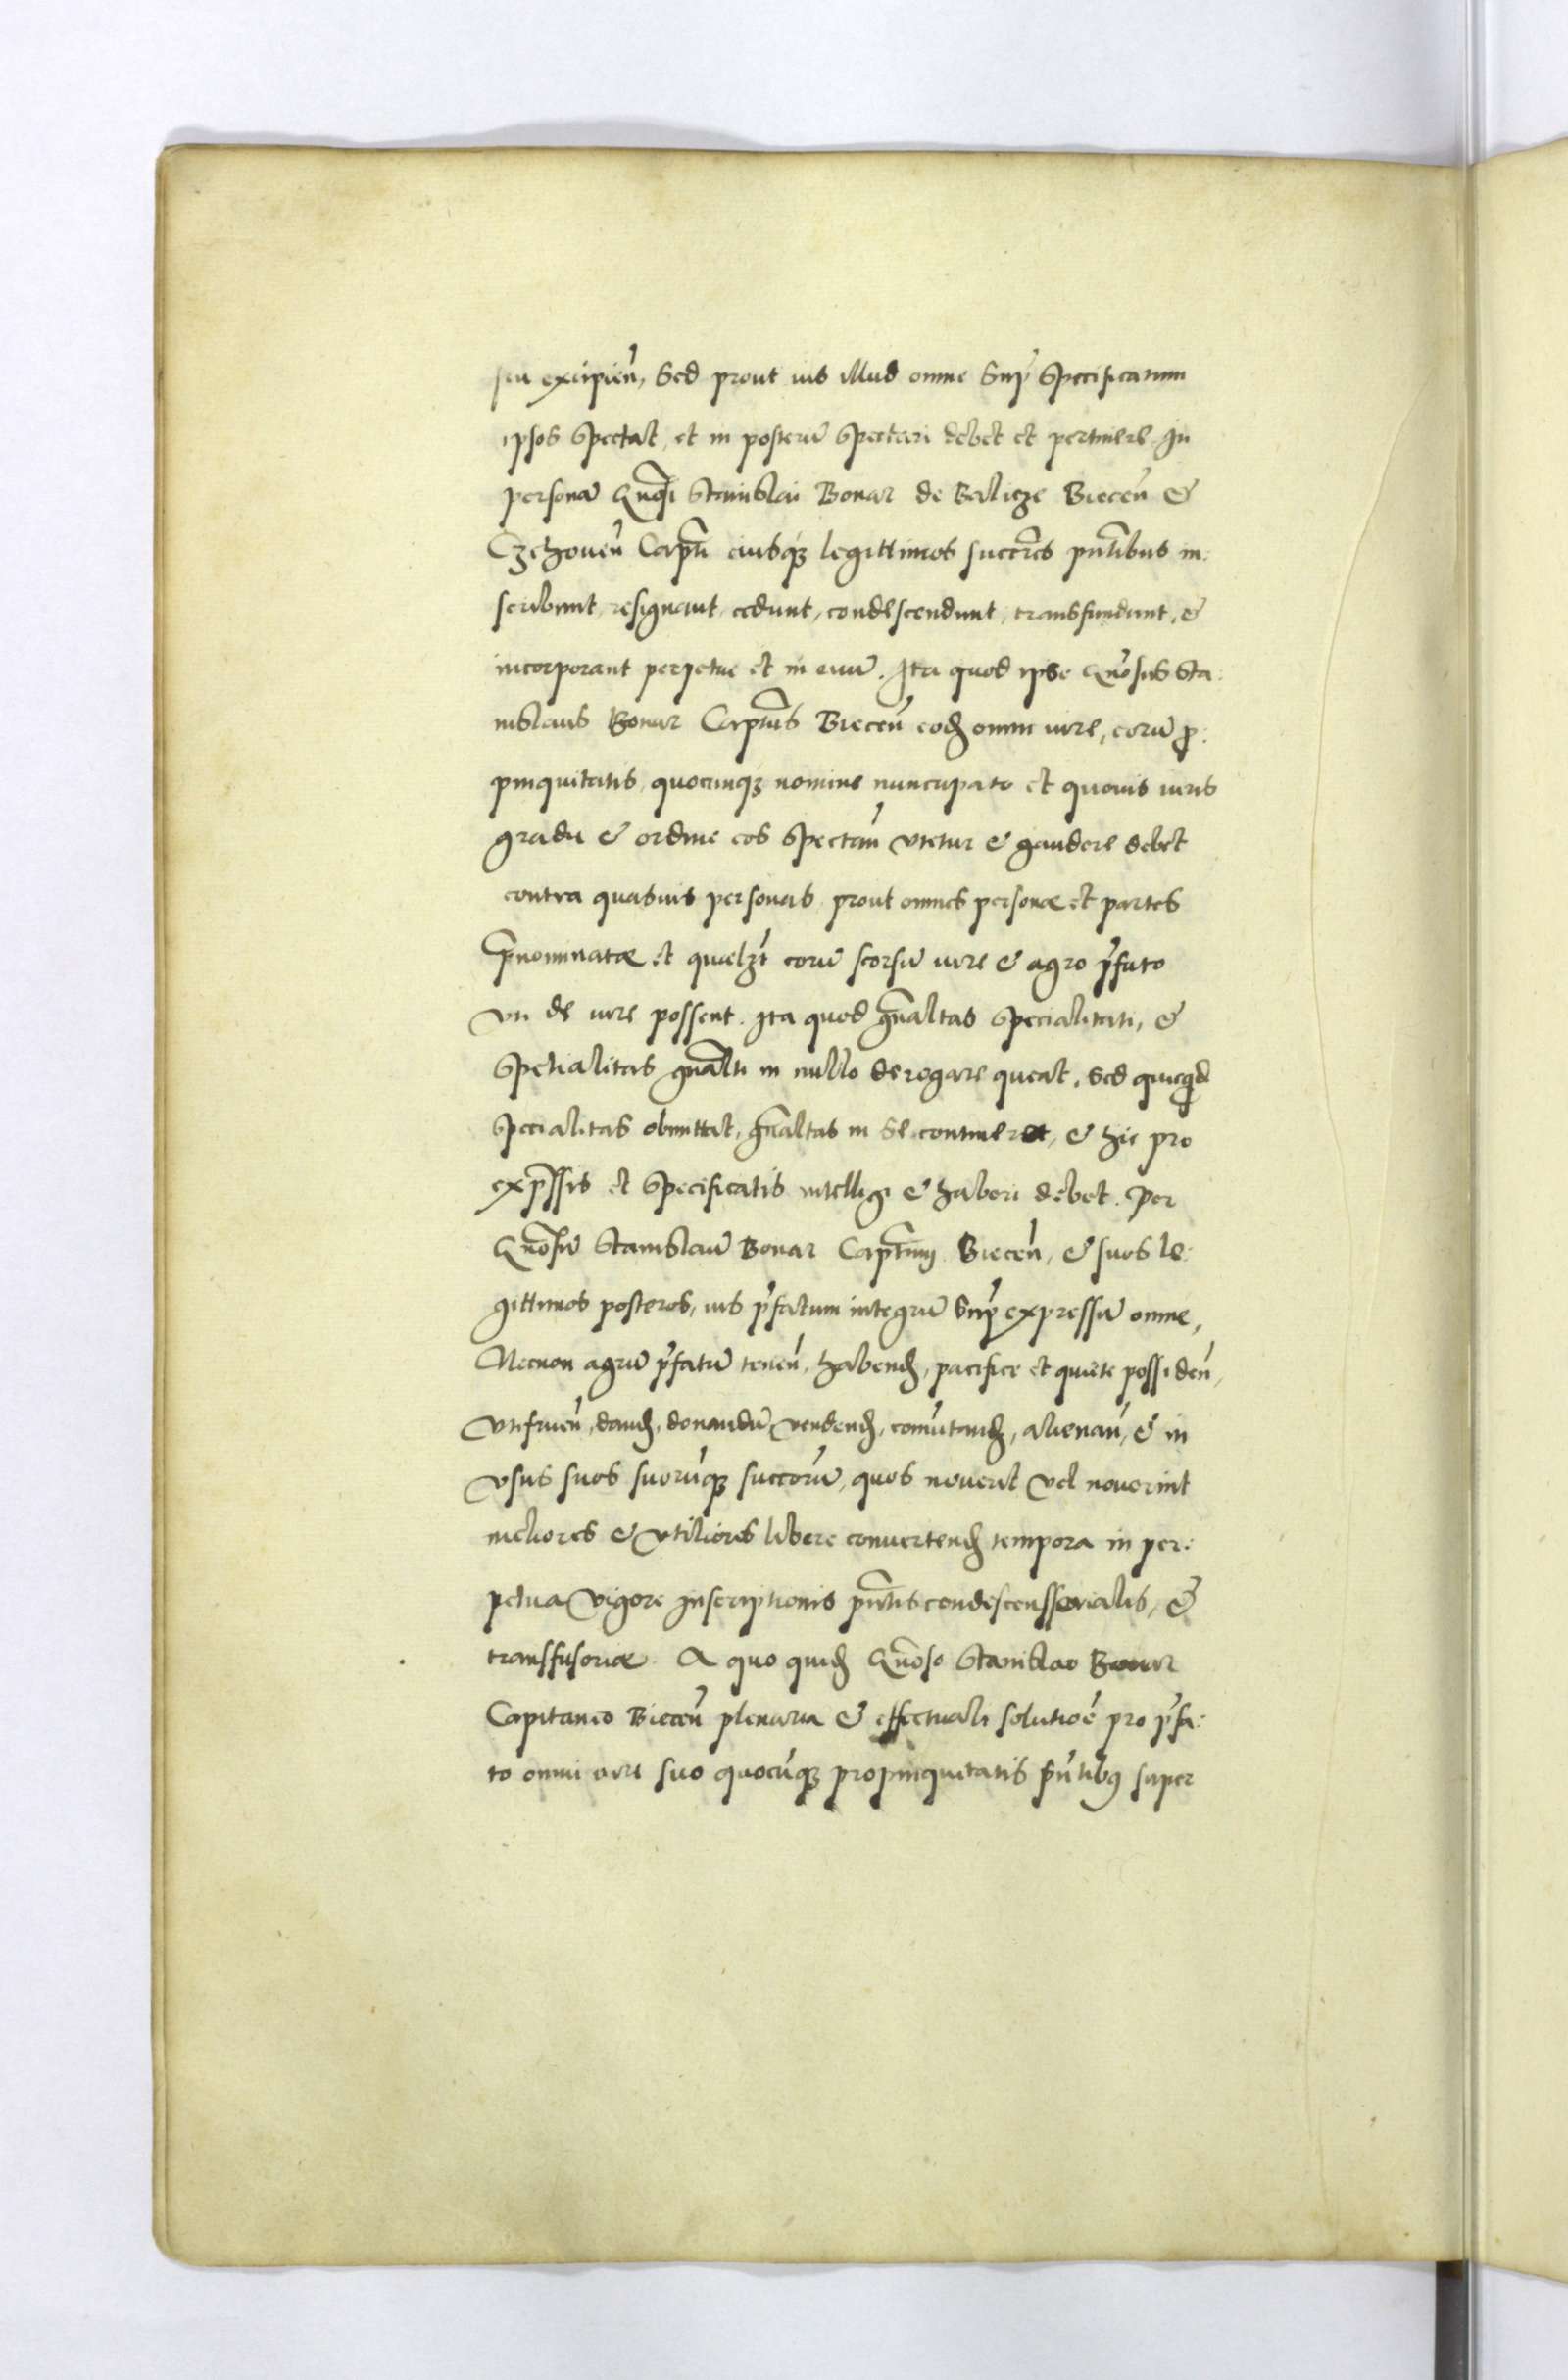 seu excipień, Sed prout ius illud omne Sup̃ Specificatum
ipsos Spectat, et in posterũ Spectari debet et pertinere In
personã Gñosi Stanislai Bonar de Balicze Biecen̄ &
Czchouen̄ Capt̃i eiusq̃ꝫ legittimos succr̃es pñtibus in:
scribunt, resignant, cedunt, condescendunt, transfundunt, &
incorporant perpetue et in euũ. Ita quod ipse Gñosus Sta:
nislaus Bonar Capt̃us Biecen̄ eodꝫ omni iure, eorũ ꝓ:
pinquitatis, quocunqꝫ nomine nuncupato et quouis iuris
gradu & ordine eos Spectan̄ vtetur & gaudere debet
contra quasuis personas prout omnes personæ et partes
p̃nominatæ et quaelꝫt eorũ seorsũ iure & agro p̃fato
vti de iure possent. Ita quod gñaltas Specialitati, &
Spetialitas gñalti in nullo derogare queat, Sed quicqd
Specialitas obmittat, gñaltas in se contineret, & hic pro
exp̃ssis et Specificatis intelligi & haberi debet. Per
Gñosũ Stanislaũ Bonar Capt̃um Biecen̄, & suos le:
gittimos posteros, ius p̃fatum integrũ Sup̃ expressũ omne,
Necnon agrũ p̃fatũ tenen̄, habendꝫ, pacifice et quiete possiden̄,
Vtifruen̄, dandꝫ, donandũ vendendꝫ, comũtandꝫ, alienan̄, & in
vsus suos suorũqꝫ succorũ, quos nouerit vel nouerint
meliores & vtiliores libere conuertendꝫ tempora in per:
petua vigore Inscriptionis pñtis condescensserialis, &
transfusoriæ A quo quidꝫ Gñoso Stanislao Bonar
Capitaneo Biecen̄ plenaria & effectuali solutioẽ pro p̃fa:
to omni iure suo quocũqꝫ propinquitatis pñtibꝰ super